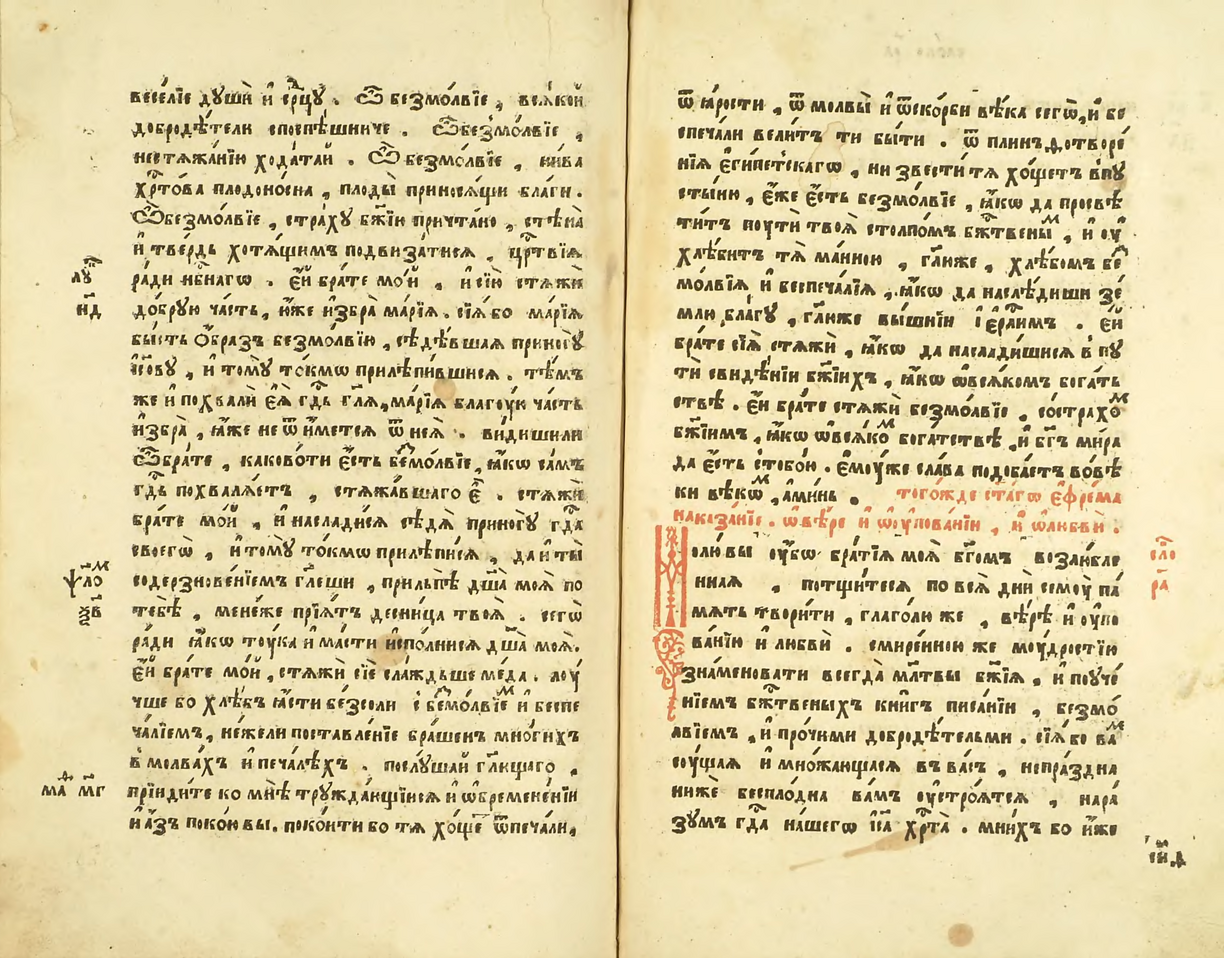 веселїе дꙋшѝ и҆ срⷣцꙋ . Ѽ безмо́лвїе , всѧ́кой
добродѣ́тели споспѣ́шниче . Ѽбезмо́лвїе ,
нестѧжа́нїю хода́таю . Ѽ безмо́лвїе , нива
хрⷭ҇то́ва плодоносна , плоды̀ приносѧ́щи благи .
Ѽбезмо́лвїе , стра́хꙋ бж҃їю причта́но , стѣна̀
и҆ тве́рдь хотѧ́щимъ подвиза́тисѧ , црⷭ҇твїѧ
ра́ди нбⷭ҇нагѡ . є҆́й бра́те мо́й , и҆ сїю̀ стѧжѝ
лꙋⷦ҇
н҃д
до́брꙋю ча́сть , ю҆́же и҆збра̀ марі́ѧ . сїѧ́ бо марі́ѧ
бы́сть ѻ҆́бразъ безмо́лвїю , сѣдѣ́вшаѧ приногꙋ̀
і҆со́вꙋ , и҆ томꙋ̀ то́кмѡ прилѣпи́вшисѧ . тѣ́мъ
же и҆ похвалѝ є҆ѧ̀ гдⷭ҇ь гл҃ѧ , марі́ѧ благꙋю ча́сть
и҆збра̀ , ꙗ҆́же не ѿ и҆́метсѧ ѿ неѧ̀ . ви́дишили
Ѽбра́те , каково́ти є҆́сть беⷥмо́лвїе , ꙗ҆́кѡ са́мъ
гдⷭ҇ь похвалѧ́етъ , стѧжа́вшаго є҆̀ . стѧжѝ
бра́те мо́й , и҆ насладисѧ сѣдѧ̀ приногꙋ̀ гдⷭ҇а
своегѡ̀ , и҆ томꙋ̀ то́кмѡ прилѣписѧ , да и҆ ты̀
ѱалоⷨ
ѯ҃в
содерзнове́нїемъ гл҃еши , прильпѐ дш҃а моѧ̀ по
тебѣ̀ , мене́же прїѧ́тъ десни́ца твоѧ̀ . сегѡ̀
ра́ди ꙗ҆́кѡ тоу́ка и҆ ма́сти и҆спо́лнисѧ дш҃а моѧ̀ .
є҆́й бра́те мо́й , стѧжѝ сїѐ сла́ждьше ме́да . лоу́
чше бо хлѣ́бъ ꙗ҆́сти безсоли с беⷥмо́лвїеⷨ и҆ беспе
ча́лїемъ , не́жели поставле́нїе бра́шенъ мно́гихъ
в молва́хъ и҆ печа́лѣхъ . послꙋ́шай гл҃ющаго ,
маⷴ м҃г
прїиди́те ко мнѣ̀ трꙋжда́ющїисѧ и҆ ѡ҆бремене́нїи
и҆ а҆́зъ поко́ю вы . поко́ити бо тѧ хо́щеⷮ ѿпеча́ли ,
ѿ ꙗ҆́рости , ѿ молвы̀ и҆ ѿскорби вѣ́ка сегѡ̀ , и҆ бе
спеча́ли вели́тъ ти бы́ти . ѿ плинⸯѳотворе́
нїѧ є҆гѵ́петскагѡ , и҆ звести́ тѧ хо́щетъ впꙋ
сты́ню , є҆́же є҆́сть безмо́лвїе , ꙗ҆́кѡ да просвѣ
ти́тъ поути твоѧ̀ столпо́мъ бжⷭ҇твены̀ⷨ , и҆ оу҆
хлѣби́тъ тѧ̀ ма́нною , гл҃юже , хлѣ́бомъ беⷥ
мо́лвїѧ и҆ беспеча́лїѧ , ꙗ҆́кѡ да наслѣ́диши зе́
млю блага́ꙋ , гл҃юже вы́шнїи і҆ерⷭ҇ли́мъ . є҆́й
бра́те сїѧ̀ стѧжѝ , ꙗ҆́кѡ да насладишисѧ в пꙋ
ти свидѣ́нїи бж҃їихъ , ꙗ҆́кѡ ѡ҆всѧ́комъ бога́ть
ствѣ . є҆́й бра́те стѧжѝ безмо́лвїе , состра́хоⷨ
бж҃їимъ , ꙗ҆́кѡ ѡ҆всѧ́коⷨ бога́тствѣ , и҆ бг҃ъ ми́ра
да є҆́сть стобо́ю . є҆моу́же сла́ва подоба́етъ во́вѣ
ки вѣкѡ́ⷨ , а҆ми́нь . того́жде ст҃а́гѡ є҆фре́ма
наказа́нїе . ѡ҆вѣ́ре и҆ ѡ҆оупова́нїи , и҆ ѡ҆любвѝ .
сло́ⷡ
р҃а
Молю́ вы оу҆́бѡ бра́тїѧ моѧ̀ бг҃омъ возлю́бле
ннаѧ , потщи́тесѧ по всѧ̀ дни̑ семоу̀ па́
мѧть твори́ти , глаго́лю же , вѣ́рѣ и҆ оупо
ва́нїю и҆ любвѝ . смире́нною же моу́дростїю
зна́меновати всегда̀ мл҃твы бж҃їѧ , и҆ поуче́
нїемъ бжⷭ҇твеныхъ кни́гъ писа́нїи , безмо́
лвїемъ , и҆ про́чими добродѣ́тельми . сїѧ̀ бо ваⷨ
соу́щаѧ и҆ мно́жащаѧсѧ въ ва́съ , непра́здна
нижѐ беспло́дна ва́мъ оу҆стро́ѧтсѧ , нара
зꙋмъ гдⷭ҇а на́шегѡ і҆са хрⷭ҇та̀ . мни́хъ бо и҆́же